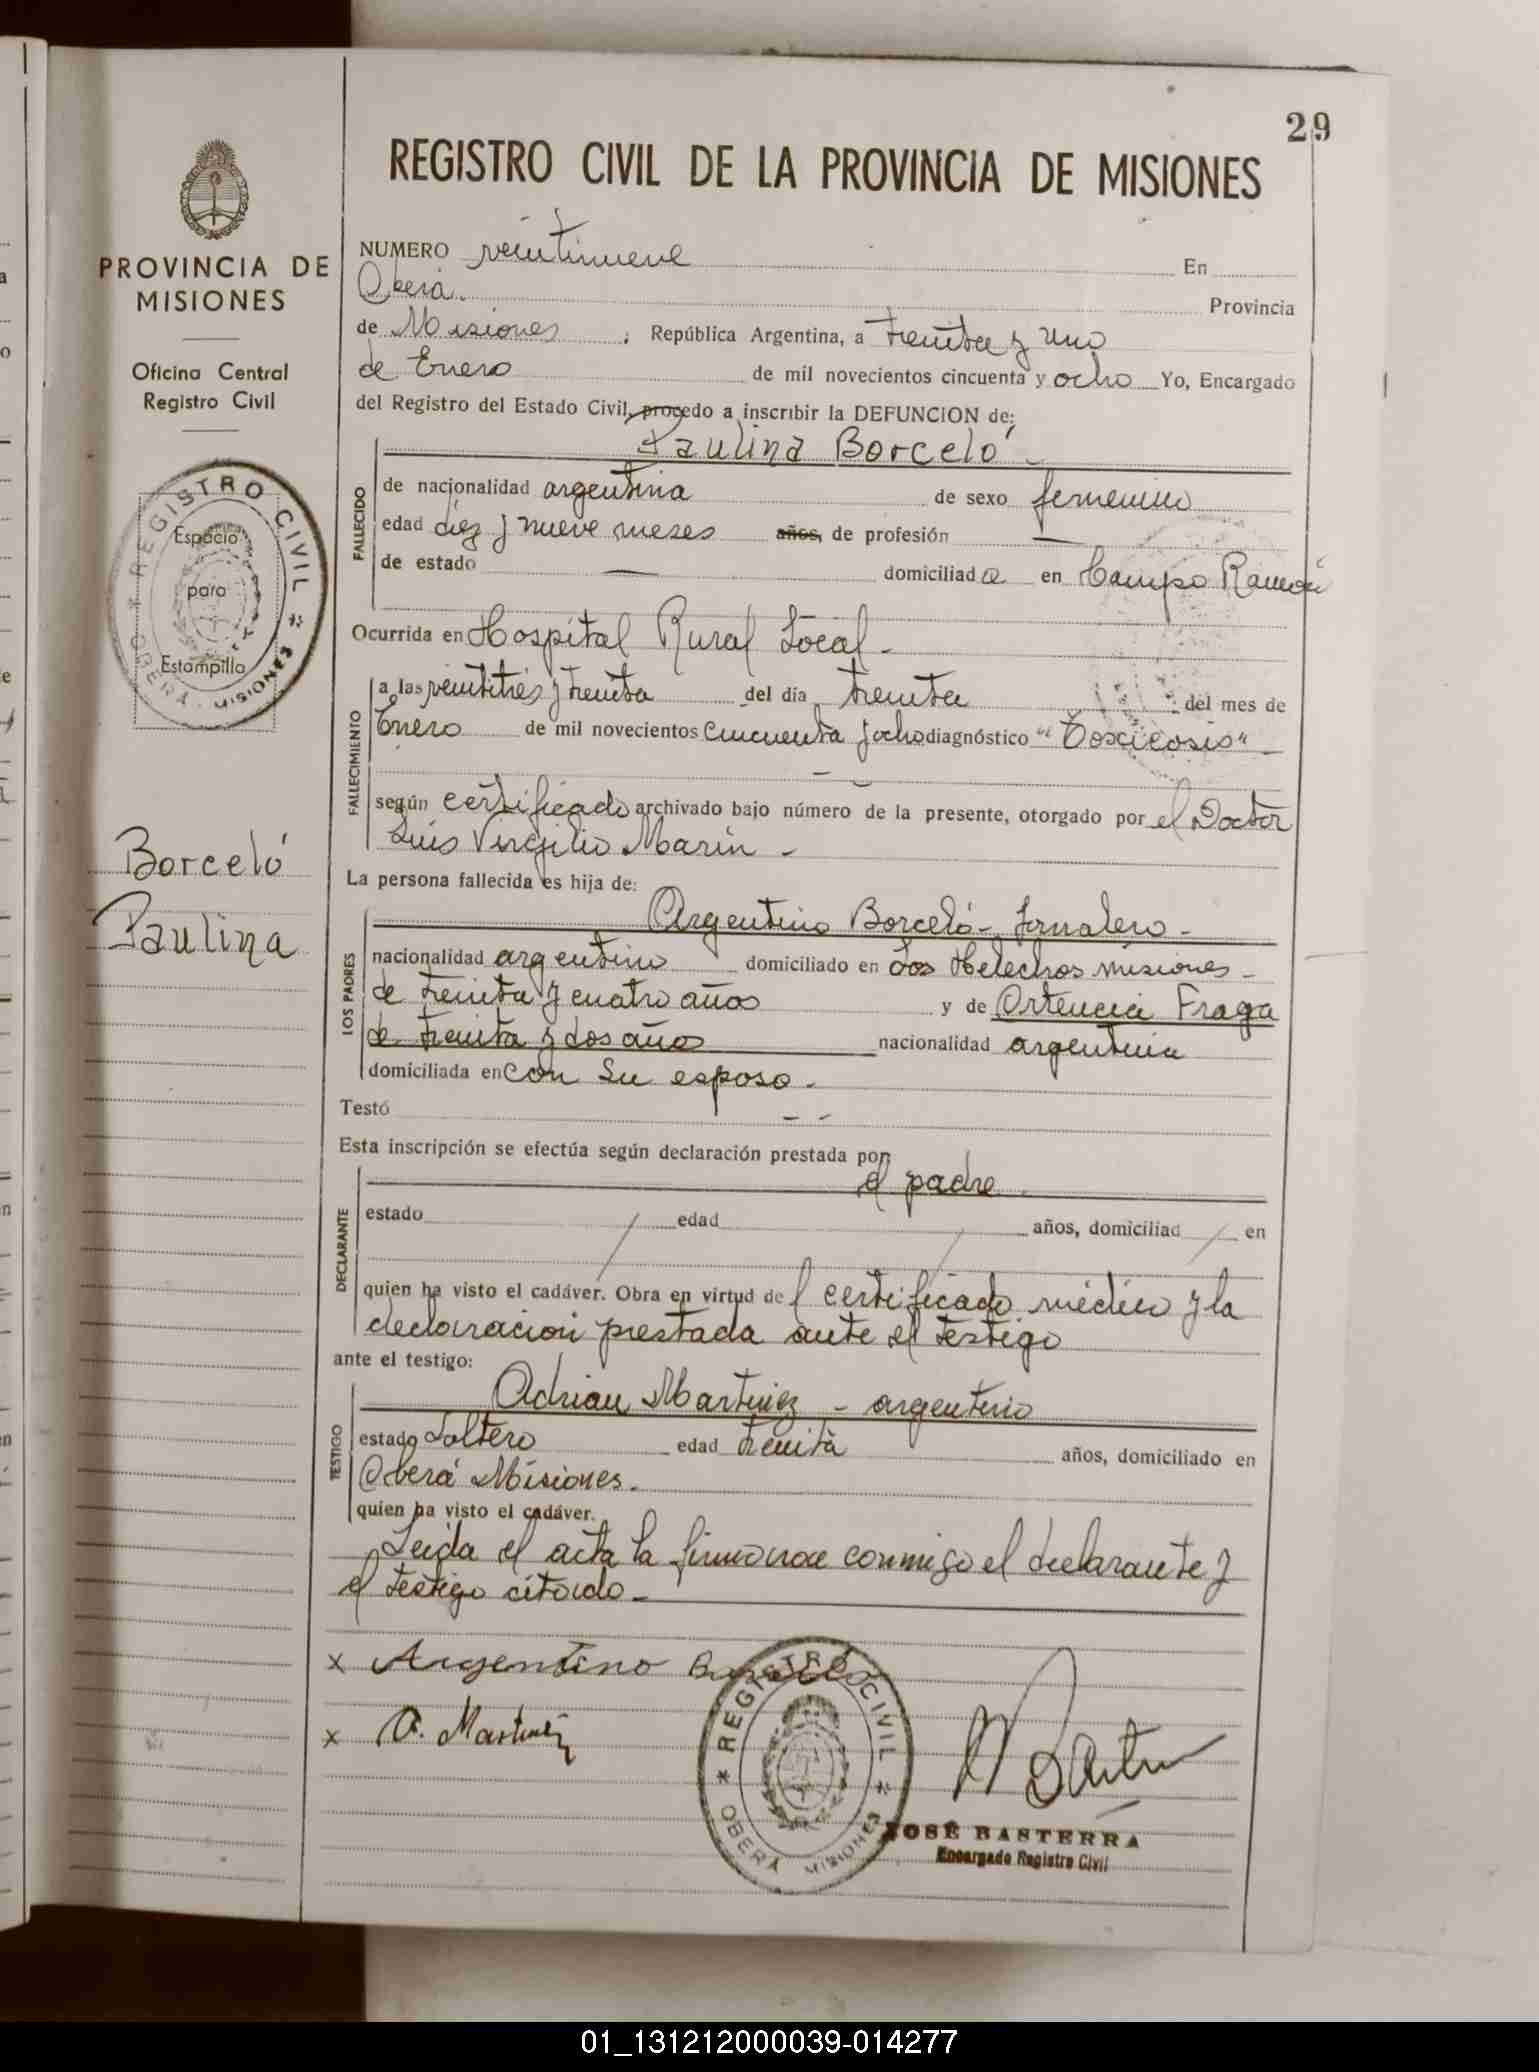 29
REGISTRO CIVIL DE LA PROVINCIA DE MISIONES
PROVINCIA DE
MISIONES
Oficina Central
Registro Civil
REGISTRO CIVIL
OBERÁ - MISIONES
Espacio
para
Estampilla
Borceló
Paulina
NUMERO veintinueve En
Oberá. Provincia
de Misiones ; República Argentina, a treinta y uno
de Enero de mil novecientos cincuenta y ocho Yo, Encargado
del Registro del Estado Civil, procedo a inscribir la DEFUNCION de:
Paulina Borceló -
FALLECIDO
de nacionalidad argentina de sexo femenino
edad diez y nueve meses años, de profesión —
de estado — domiciliada en Campo Ramón
Ocurrida en Hospital Rural Local -
FALLECIMIENTO
a las veintitrés y treinta del día treinta del mes de
Enero de mil novecientos cincuenta y ocho diagnóstico "Toxicosis" -
según certificado archivado bajo número de la presente, otorgado por el Doctor
Luis Virgilio Marín -
La persona fallecida es hija de:
LOS PADRES
Argentino Borceló - Jornalero -
nacionalidad argentino domiciliado en Los Helechos Misiones -
de treinta y cuatro años y de Ortencia Fraga
de treinta y dos años nacionalidad argentina
domiciliada en con su esposo -
Testó - -
Esta inscripción se efectúa según declaración prestada por
el padre
DECLARANTE
estado / edad / años, domiciliad / en
quien ha visto el cadáver. Obra en virtud del certificado médico y la
declaracion prestada ante el testigo
ante el testigo:
TESTIGO
Adrian Martinez - argentino
estado Soltero edad treinta años, domiciliado en
Oberá Misiones.
quien ha visto el cadáver.
Leida el acta la firman conmigo el declarante y
el testigo citado -
x Argentino
x A. Martinez
REGISTRO CIVIL
OBERÁ MISIONES
JOSÉ BASTERRA
Encargado Registro Civil
01_131212000039-014277